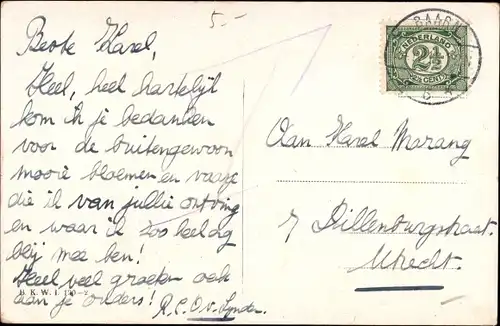 5.-
Beste Karel,
Heel, heel hartelijk
kom ik je bedanken
voor de buitengewoon
mooie bloemen en vaasje
die ik van jullie ontving
en waar ik zoo heel erg
blij mee ben!
Heel veel groeten ook
aan je ouders!
B.K.W.I.
BAARN
NEDERLAND
2½
CENT
Aan Karel Marang
7 Dillenburgstraat.
Utrecht.